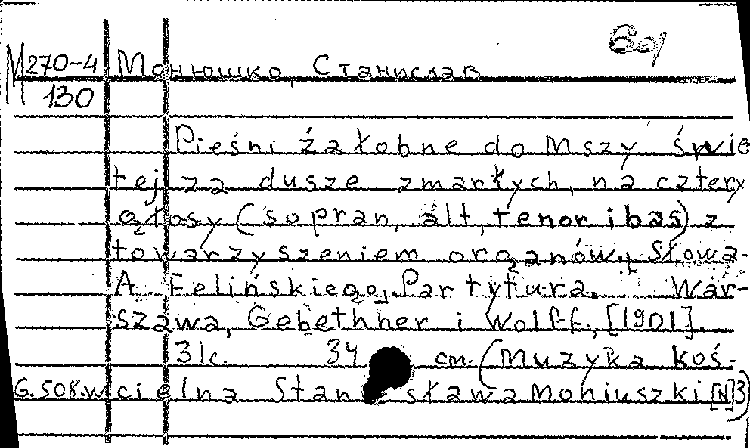 601
М 270-4 Монюшко, Станислав
130
Pieśni żałobne do Mszy świę
tej za dusze zmarłych, na cztery
głosy (sopran, alt, tenor i bas) z
towarzyszeniem organów. Słowa
A. Felińskiego. Partytura. War-
szawa, Gebethner i Wolff, [1901].
31c. 34 cm. (Muzyka koś-
G.508.w cielna Stan sława Moniuszki [N]3)